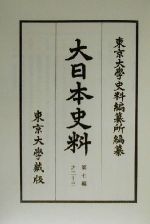 東京大學史料編纂所編纂
大日本史料
第十編
之二十三
東京大學藏版